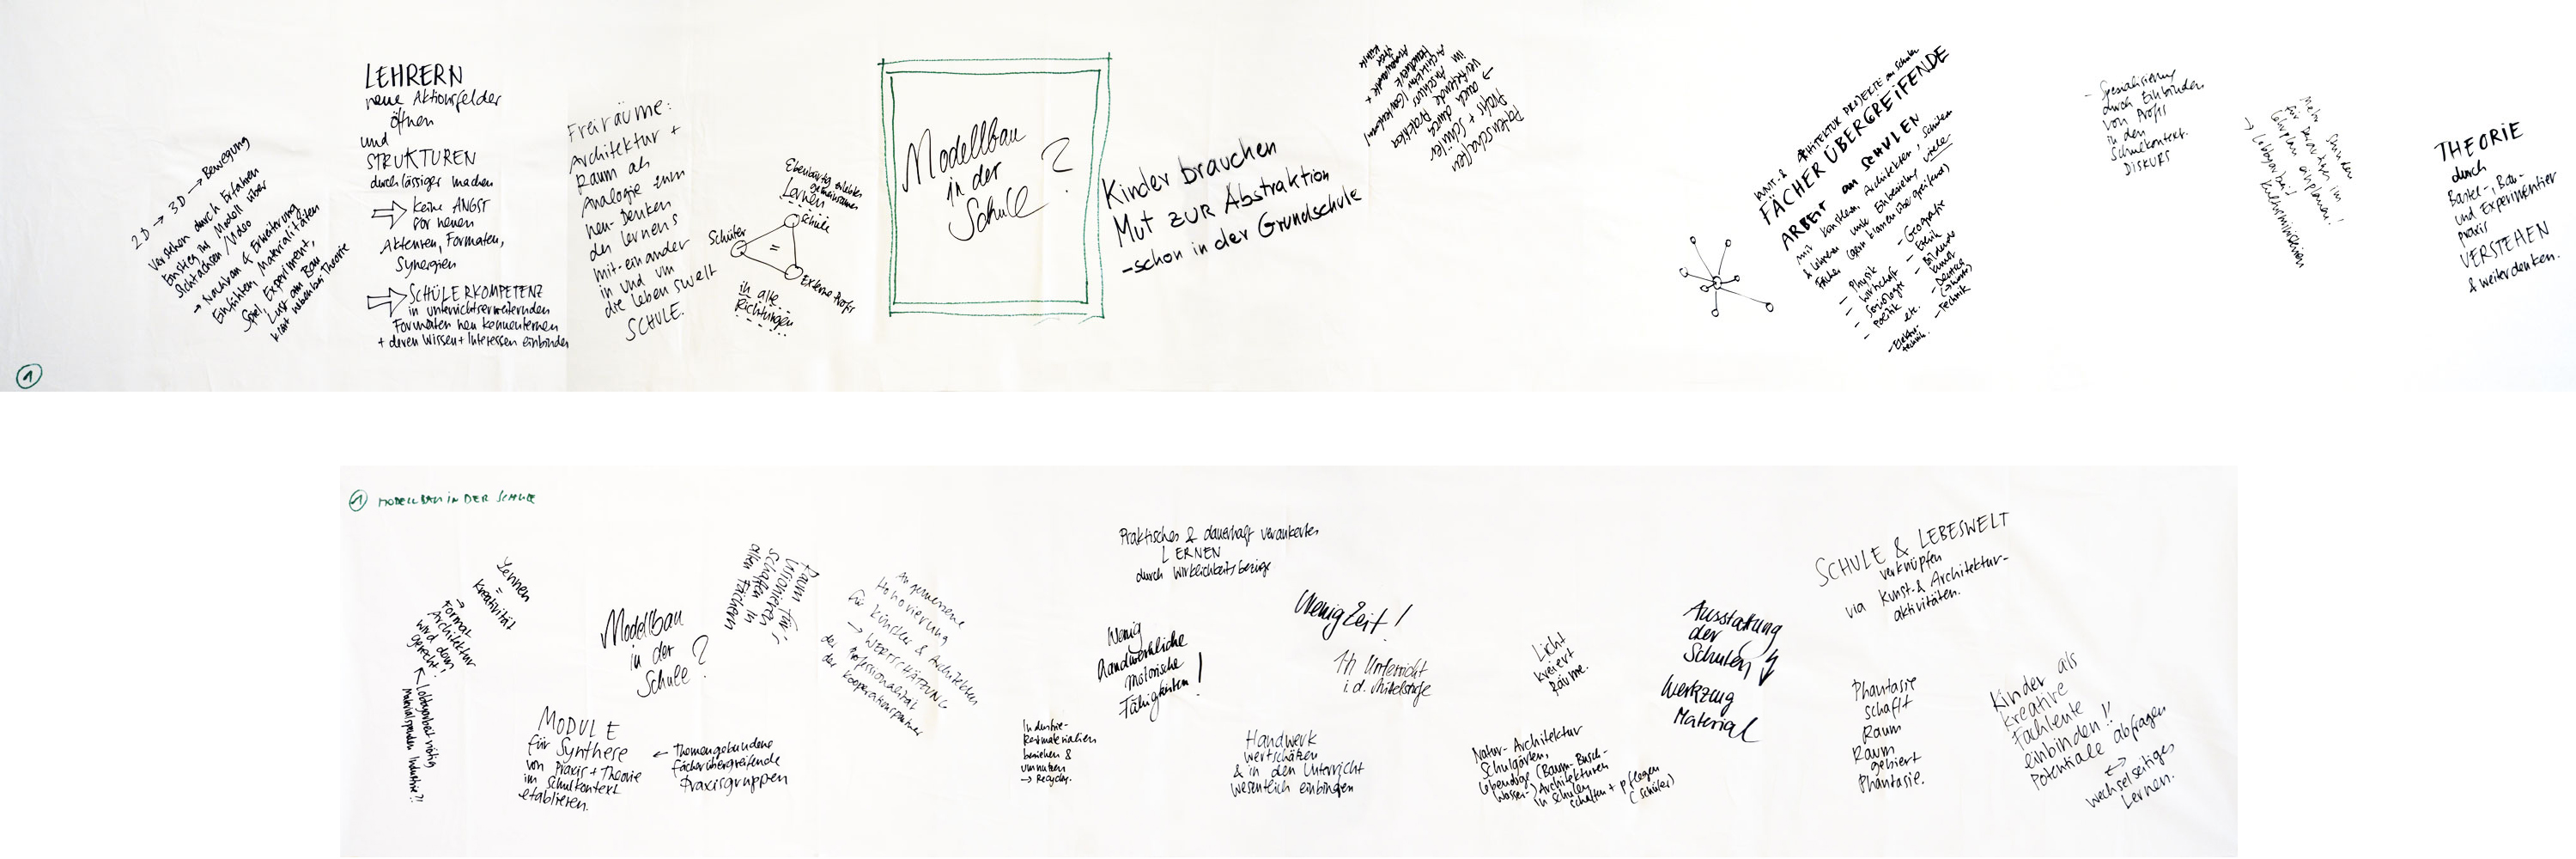 2D → 3D → Bewegung
Verstehen durch Erfahren
Einstieg ins Modell über
Sichtachsen / Video
→ Nachbau & Erweiterung
Einfühlen, Materialitäten
Spiel, Experiment,
Lust am Bau
LEHRERN
neue Aktionsfelder
öffnen
und
STRUKTUREN
durchlässiger machen
⇒ keine ANGST
vor neuen
Akteuren, Formaten,
Synergien
⇒ SCHÜLERKOMPETENZ
in unterrichtserweiternden
Formaten neu kennenlernen
+ deren Wissen + Interessen einbinden
Freiräume:
Architektur +
Raum als
Analogie zum
neu-Denken
des Lernens
mit-einander
in und um
die Lebenswelt
SCHULE.
Lernen
Schule
Schüler
=
Externe Profis
in alle
Richtungen
Modellbau
in der
Schule ?
Kinder brauchen
Mut zur Abstraktion
- schon in der Grundschule
Patenschaften
Profis + Schüler
auch durch Praktika
ARCHITEKTUR PROJEKTE an Schulen
FÄCHER ÜBERGREIFENDE
ARBEIT an SCHULEN
mit Künstlern, Architekten, Schülern
& Lehrern unter Einbeziehung vieler
Fächer (gern klassenübergreifend)
- Physik
- Wirtschaft
- Soziologie
- Politik
etc.
- Elektro-
technik.
- Geografie
- Ethik
- Bildende
Kunst
- Deutsch
- Technik
- Spezialisierung
durch Einbinden
von Profis
in den
Schulkontext.
DISKURS
THEORIE
durch
Bastel-, Bau-
und Experimentier
praxis
VERSTEHEN
& weiterdenken.
①
① MODELLBAU IN DER SCHULE
Lernen
=
Kreativität
→ Format
Architektur
wird dem
gerecht!
↑ Lobbyarbeit nötig
Materialspenden Industrie?!
Modellbau
in der
Schule ?
Raum für's
Visionieren
schaffen in
allen Fächern
MODULE
für Synthese
von Praxis + Theorie
im Schulkontext
etablieren.
← Themengebundene
fächerübergreifende
Praxisgruppen
Angemessene
Honorierung
für Künstler & Architekten
→ WERTSCHÄTZUNG
der Professionalität
der Kooperationspartner
Praktisches & dauerhaft verankertes
LERNEN
durch Wirklichkeitsbezüge
Wenig
handwerkliche
motorische
Fähigkeiten !
Wenig Zeit !
1h Unterricht
i.d. Mittelstufe
Industrie-
Restmaterialien
beziehen &
umnutzen
→ Recycling.
Handwerk
wertschätzen
& in den Unterricht
wesentlich einbringen
Licht
kreiert
Räume.
Natur-Architektur
Schulgärten,
lebendige (Baum-Busch-
Wasser-) Architekturen
in Schulen
schaffen + pflegen
(Schüler)
Ausstattung
der
Schulen
Werkzeug
Material
SCHULE & LEBESWELT
verknüpfen
via Kunst- & Architektur-
aktivitäten.
Phantasie
schafft
Raum
Raum
gebiert
Phantasie.
Kinder als
kreative
Fachleute
einbinden !!
Potentiale abfragen
↔
wechselseitiges
Lernen.